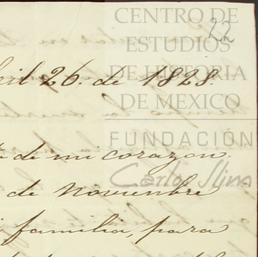 CENTRO DE
ESTUDIOS
DE HISTORIA
DE MEXICO
FUNDACIÓN
Carlos Slim
22
ril 26. de 1828.
de mi corazon.
de Noviembre
familia, para